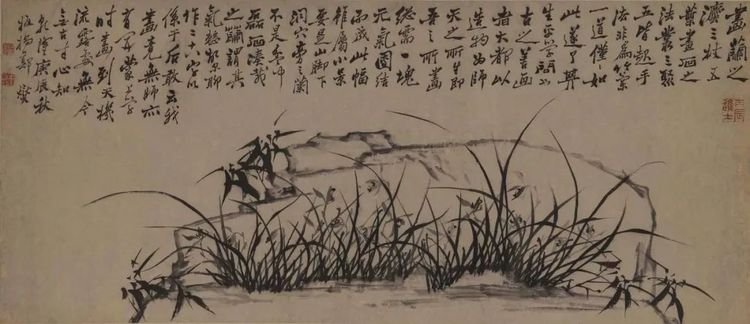 畫蘭之
法三枝五
葉畫石之
法叢三聚
五皆起手
法非為竹蘭
一道僅僅如
此遂了其
生平學問也
古之善画
者大都以
造物為師
天之所生即
吾之所畫
總需一塊
元氣團結
而成此幅
雖屬小景
要是山脚下
洞穴旁之蘭
不是盆中
磊石湊栽
之蘭謂其
氣整故爾聊
作二十八字以
係于后敢云我
畫竟無師亦
有開蒙上學
時畫到天機
流露處無今
無古寸心知
乾隆庚辰秋
板橋鄭燮